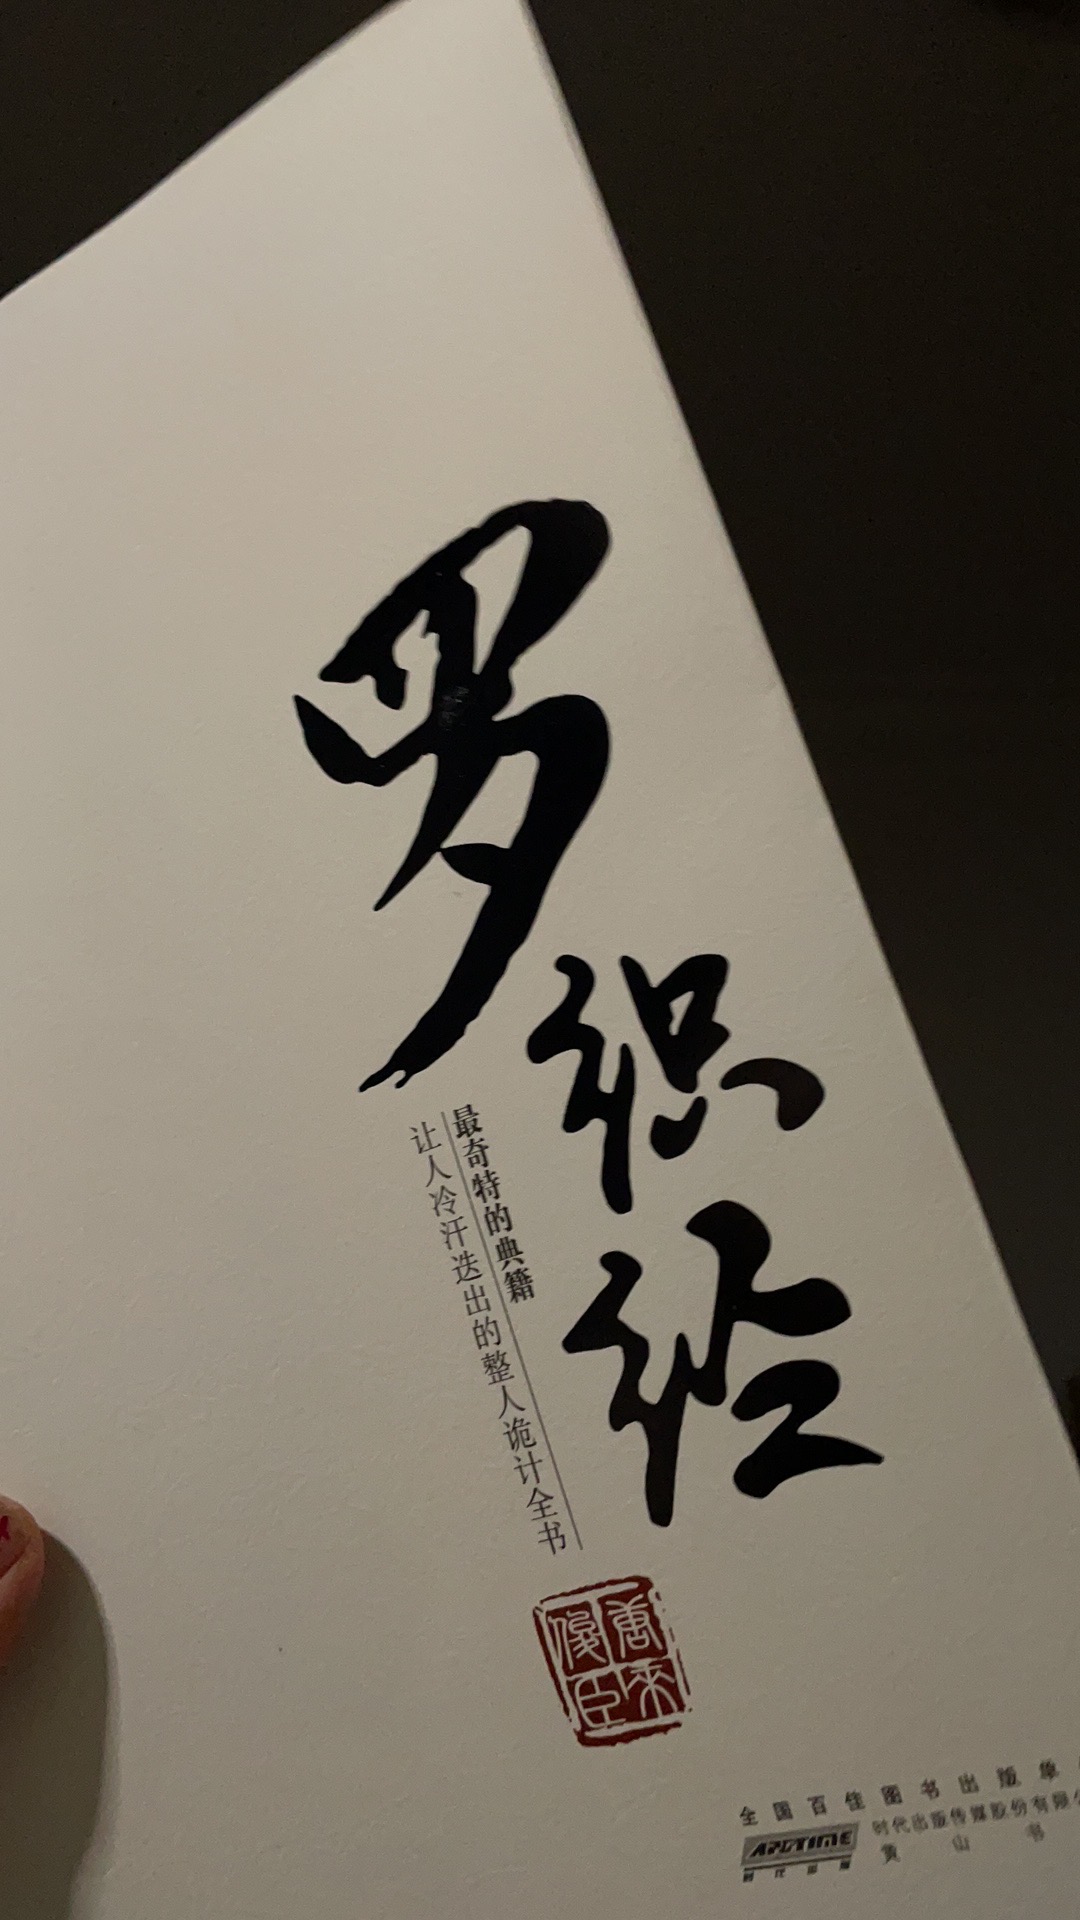 罗织经
最奇特的典籍
让人冷汗迭出的整人诡计全书
唐来俊臣
全国百佳图书出版单
APGTIME
时代出版
时代出版传媒股份有限公
黄山书